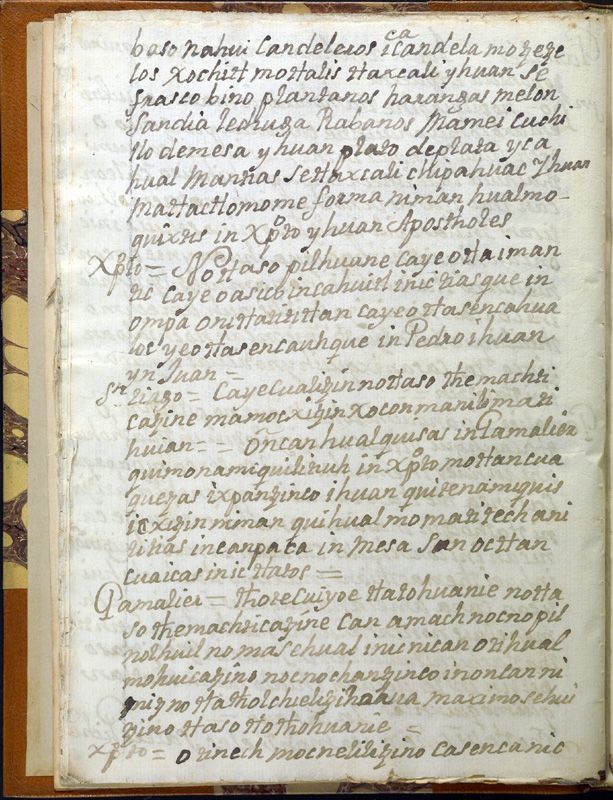 baso nahui Candeleros ica candela mozeze
los xochitl mostalis tlaxcali yhuan se
frasco bino plantanos haranzas melon
sandia lechuga Rabanos Mamei cuchi
llo demesa yhuan plato deplata yca
hual Mantias setlaxcali chipahuac Yhuan
Matlactlomome forma niman hualmo-
quixtis in Xpto yhuan Apostholes
Xpto = Notlaso pilhuane caye otla iman
tic caye oasico in cahuitl inic tiasque in
ompa onitlatitlan caye otlasencahua
loc yeotlasencauhque in Pedro ihuan
yn Juan =
Sn tiago = Caye cualtzin notlaso themachti
catzine mamocxitzin xoconmanib mati
huian = = Oncan hualquisas in Gamaliel
quimonamiquilitiuh in Xpto motlancua
quetzas ixpantzinco ihuan quitenamiquis
icxitzin niman quihualmomatitech ani
litias incanpaca in Mesa san oc tlan
cuaicas inic tlatos =
Gamaliel = thotecuiyoe tlatohuanie notla
so themachticatzine can amach nocnopil
nolhuil nomasehual inic nican otihual
mohuicatzino nocnochantzinco inoncan ni
mitznotlatholchielitzihuaua maximosehui
tzino tlaso tlothohuanie =
Xpto = otinech mocnelilitzino casencanic